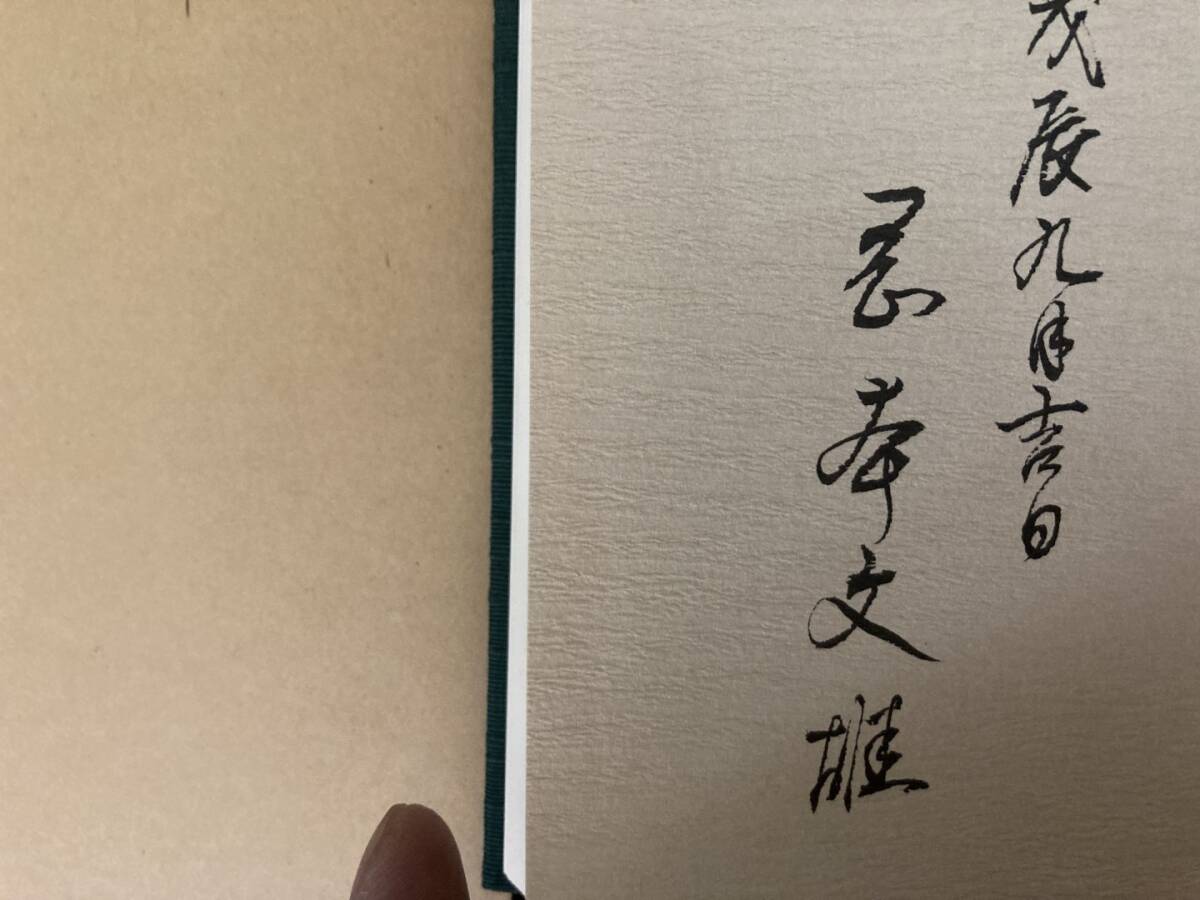 戊辰九月吉日
岡本文雄